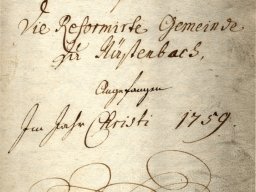 Die Reformirte Gemeinde
zu Nüstenbach,
Angefangen
Im Jahr Christi 1759.